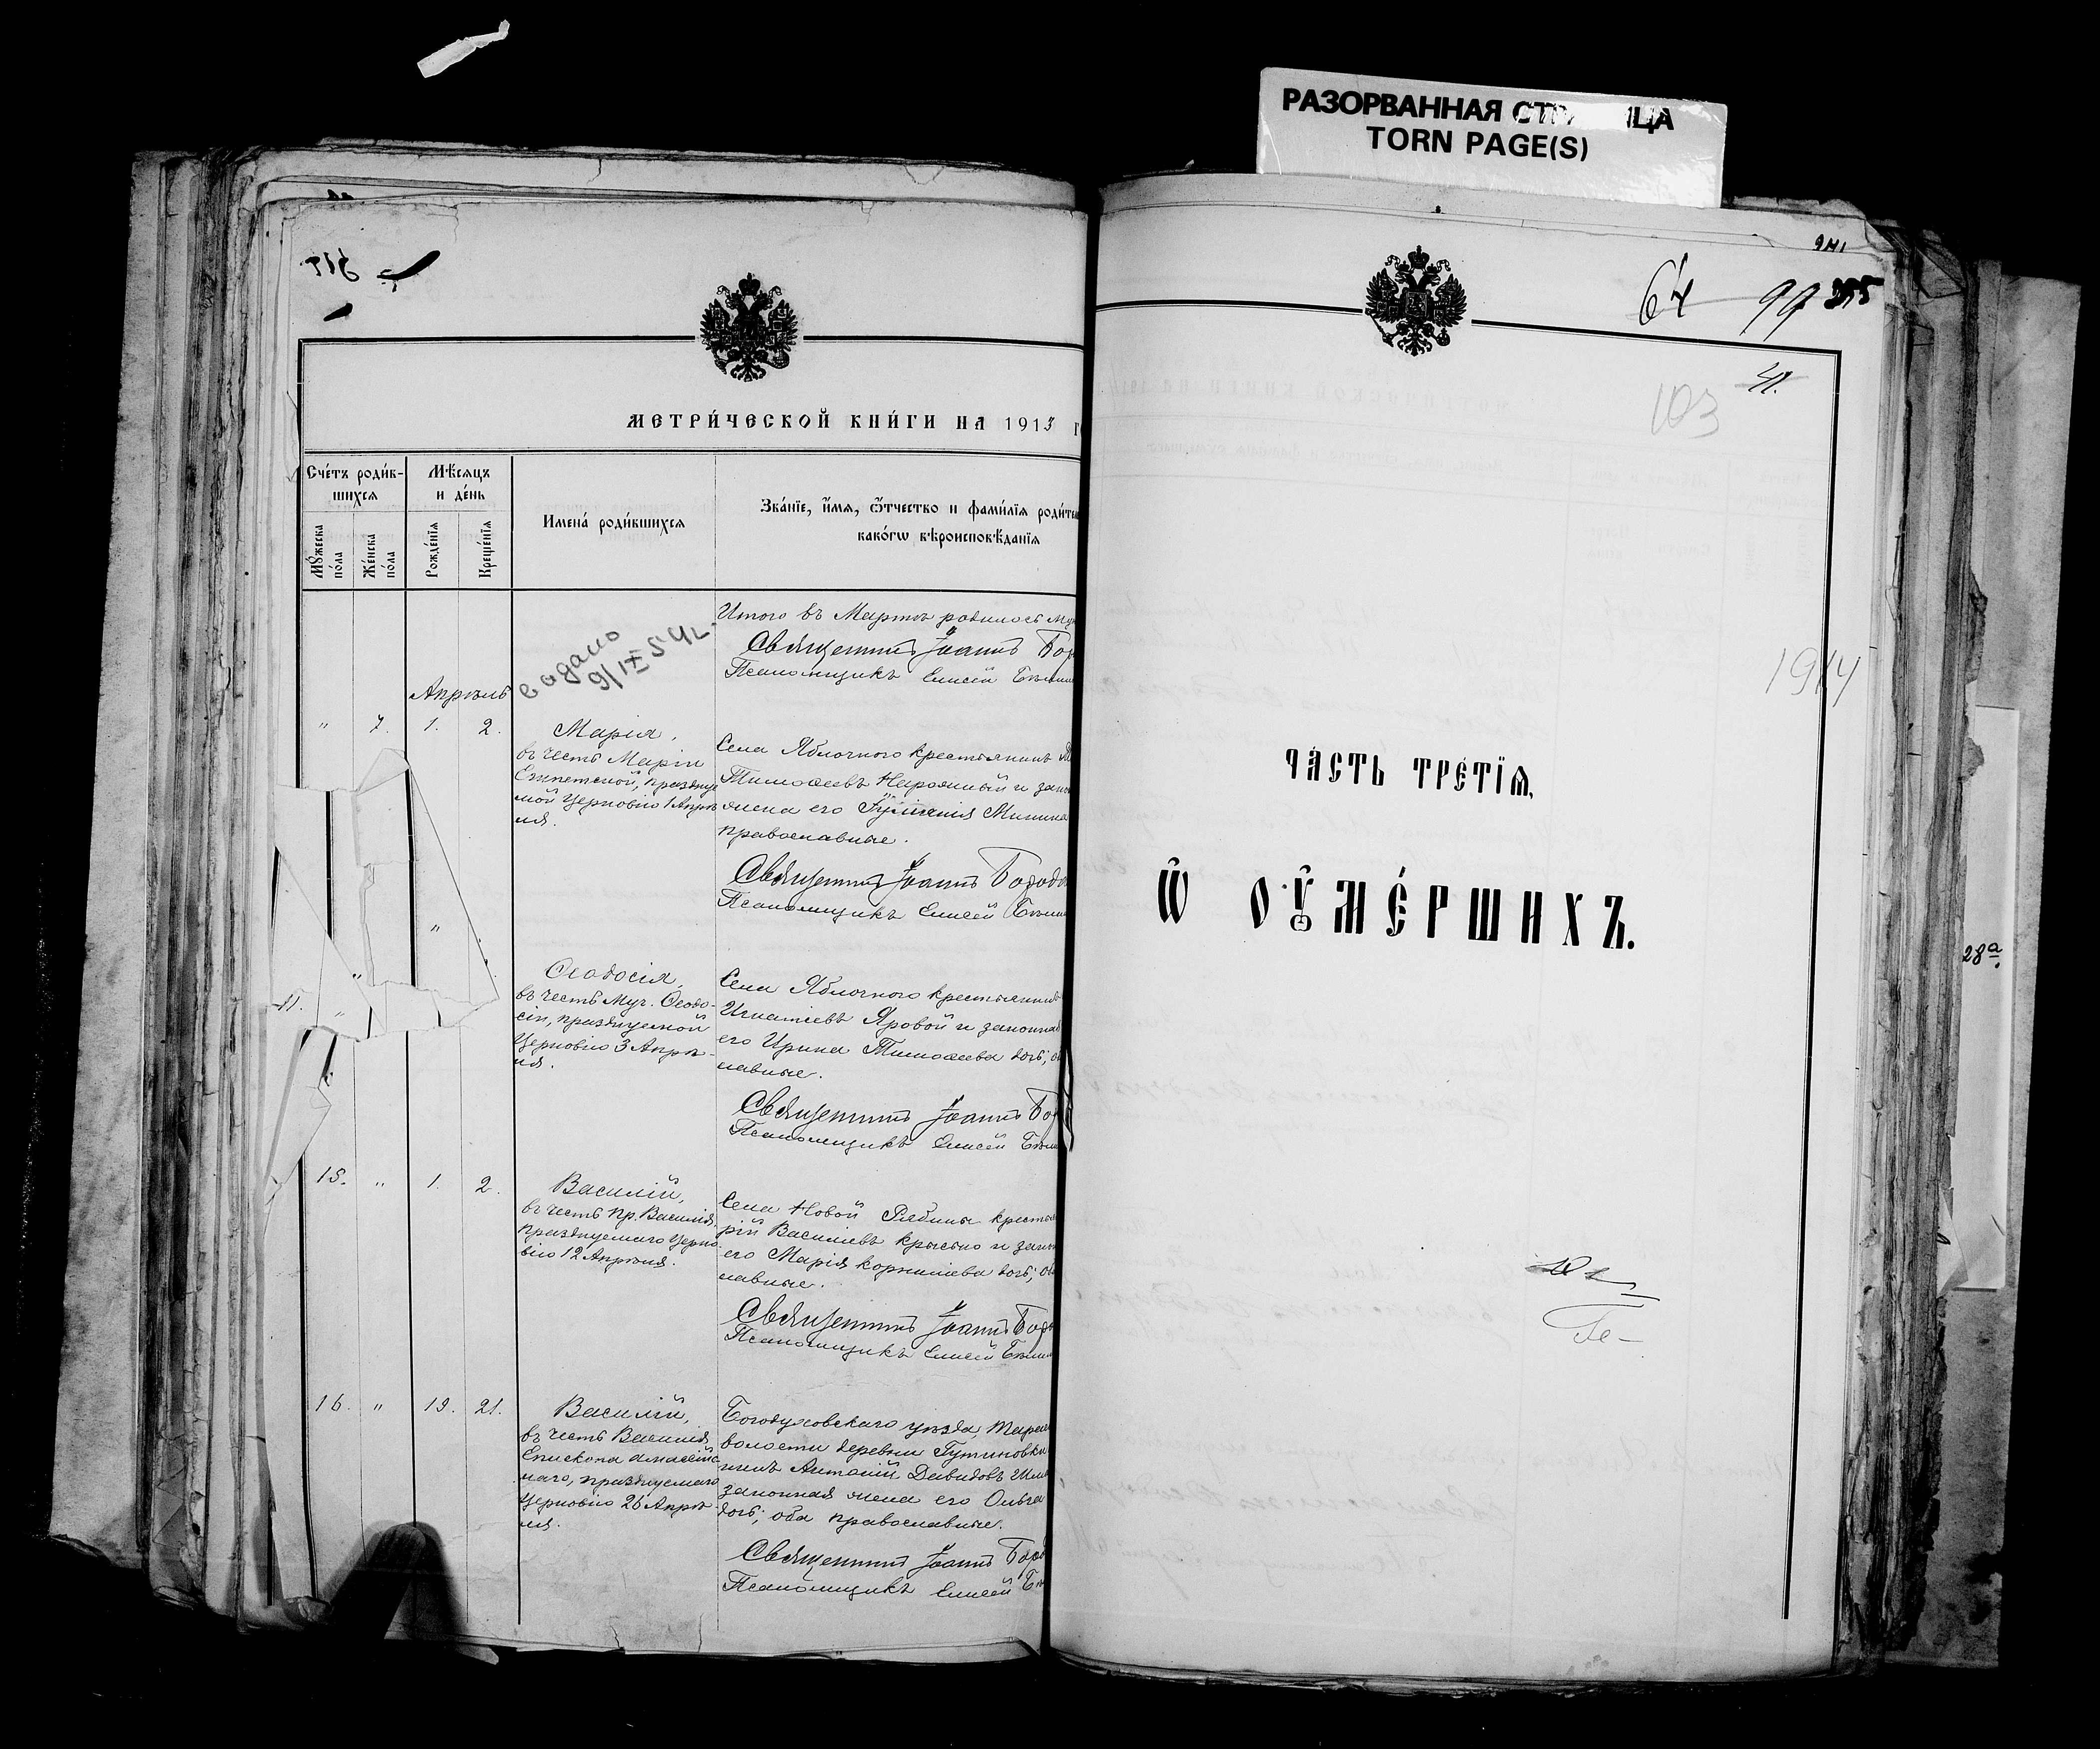 РАЗОРВАННАЯ СТР ИЦА
TORN PAGE(S)
МЕТРИ́ЧЕСКОЙ КНИ́ГИ НА 1913
Сче́тъ роди́в-
шихся
Мѣ́сяцъ
и де́нь
Мꙋ́жеска
по́ла
Же́нска
по́ла
Рожде́нїя
Креще́нїя
Имена́ роди́вшихся
Зва́нїе, и́мя, ѻ́тчество и фами́лїя роди́тел
како́гѡ вѣроисповѣ́данїя
Итого въ Мартѣ родилось Муж
Священникъ Іоаннъ Бор
Псаломщикъ Елисей
выдано
9/IX 54 г.
Апрѣль
" 7. 1. 2.
Марія,
въ честь Маріи
Египетской, празднуе
мой Церковію 1 Апрѣ
ля.
Села Яблочного крестьянинъ
Тимоѳеевъ Нарожный и закон
жена его Гликерія Минина
православные.
Священникъ Іоаннъ Бородо
Псаломщикъ Елисей
"
"
11. "
Ѳеодосія,
въ честь Муч. Ѳеодо-
сіи, празднуемой
Церковію 3 Апрѣ-
ля.
Села Яблочного крестьянинъ
Игнатіевъ Яровой и законная
его Ирина Тимоѳеева дочь; об
лавные.
Священникъ Іоаннъ Бор
Псаломщикъ Елисей
15. " 1. 2.
Василій,
въ честь Пр. Василія,
празднуемаго Церко
вію 12 Апрѣля.
Села Новой Рябины кресть
рій Васильевъ Крысько и закон
его Марія Корнилієва дочь; об
лавные.
Священникъ Іоаннъ Боро
Псаломщикъ Елисей
16. " 19. 21.
Василій,
въ честь Василія
Епископа Амасійс
каго, празднуемаго
Церковію 26 Апрѣ
ля.
Богодуховскаго уѣзда,
волости деревни Гутиновки
нинъ Антоній Давидовъ
законная жена его Ольга
дочь; оба православные.
Священникъ Іоаннъ Боро
Псаломщикъ Елисей
64 99
41.
103
1914
ЧА́СТЬ ТРЕ́ТЇѦ,
Ѿ ОУ҆МЕ́РШИХЪ.
28а.